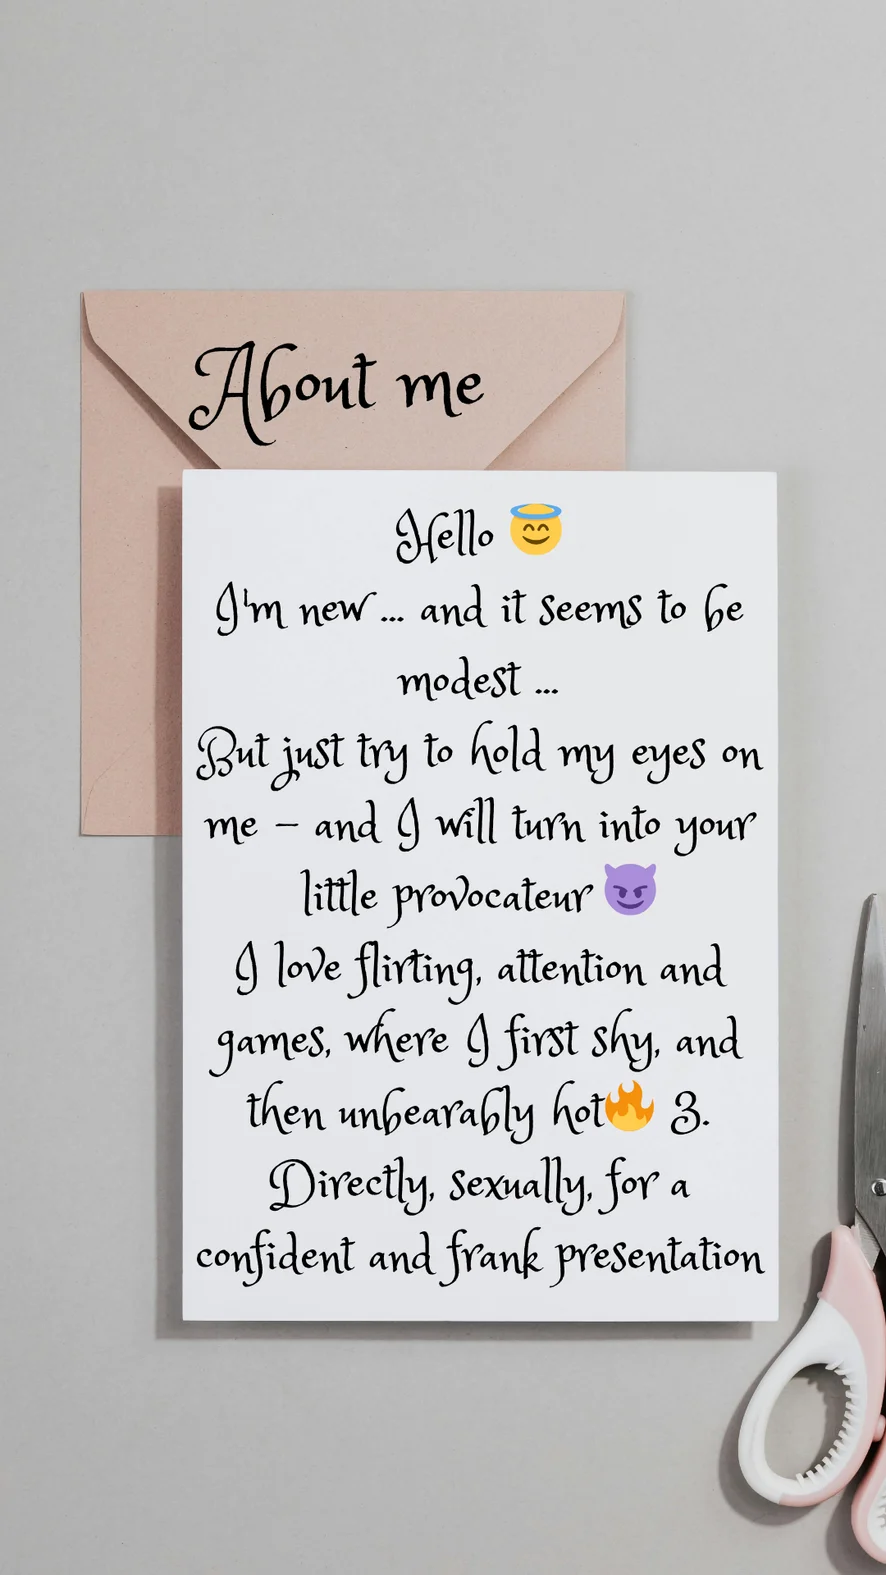 About me
Hello 😇
I'm new ... and it seems to be
modest ...
But just try to hold my eyes on
me – and I will turn into your
little provocateur 😈
I love flirting, attention and
games, where I first shy, and
then unbearably hot🔥 3.
Directly, sexually, for a
confident and frank presentation